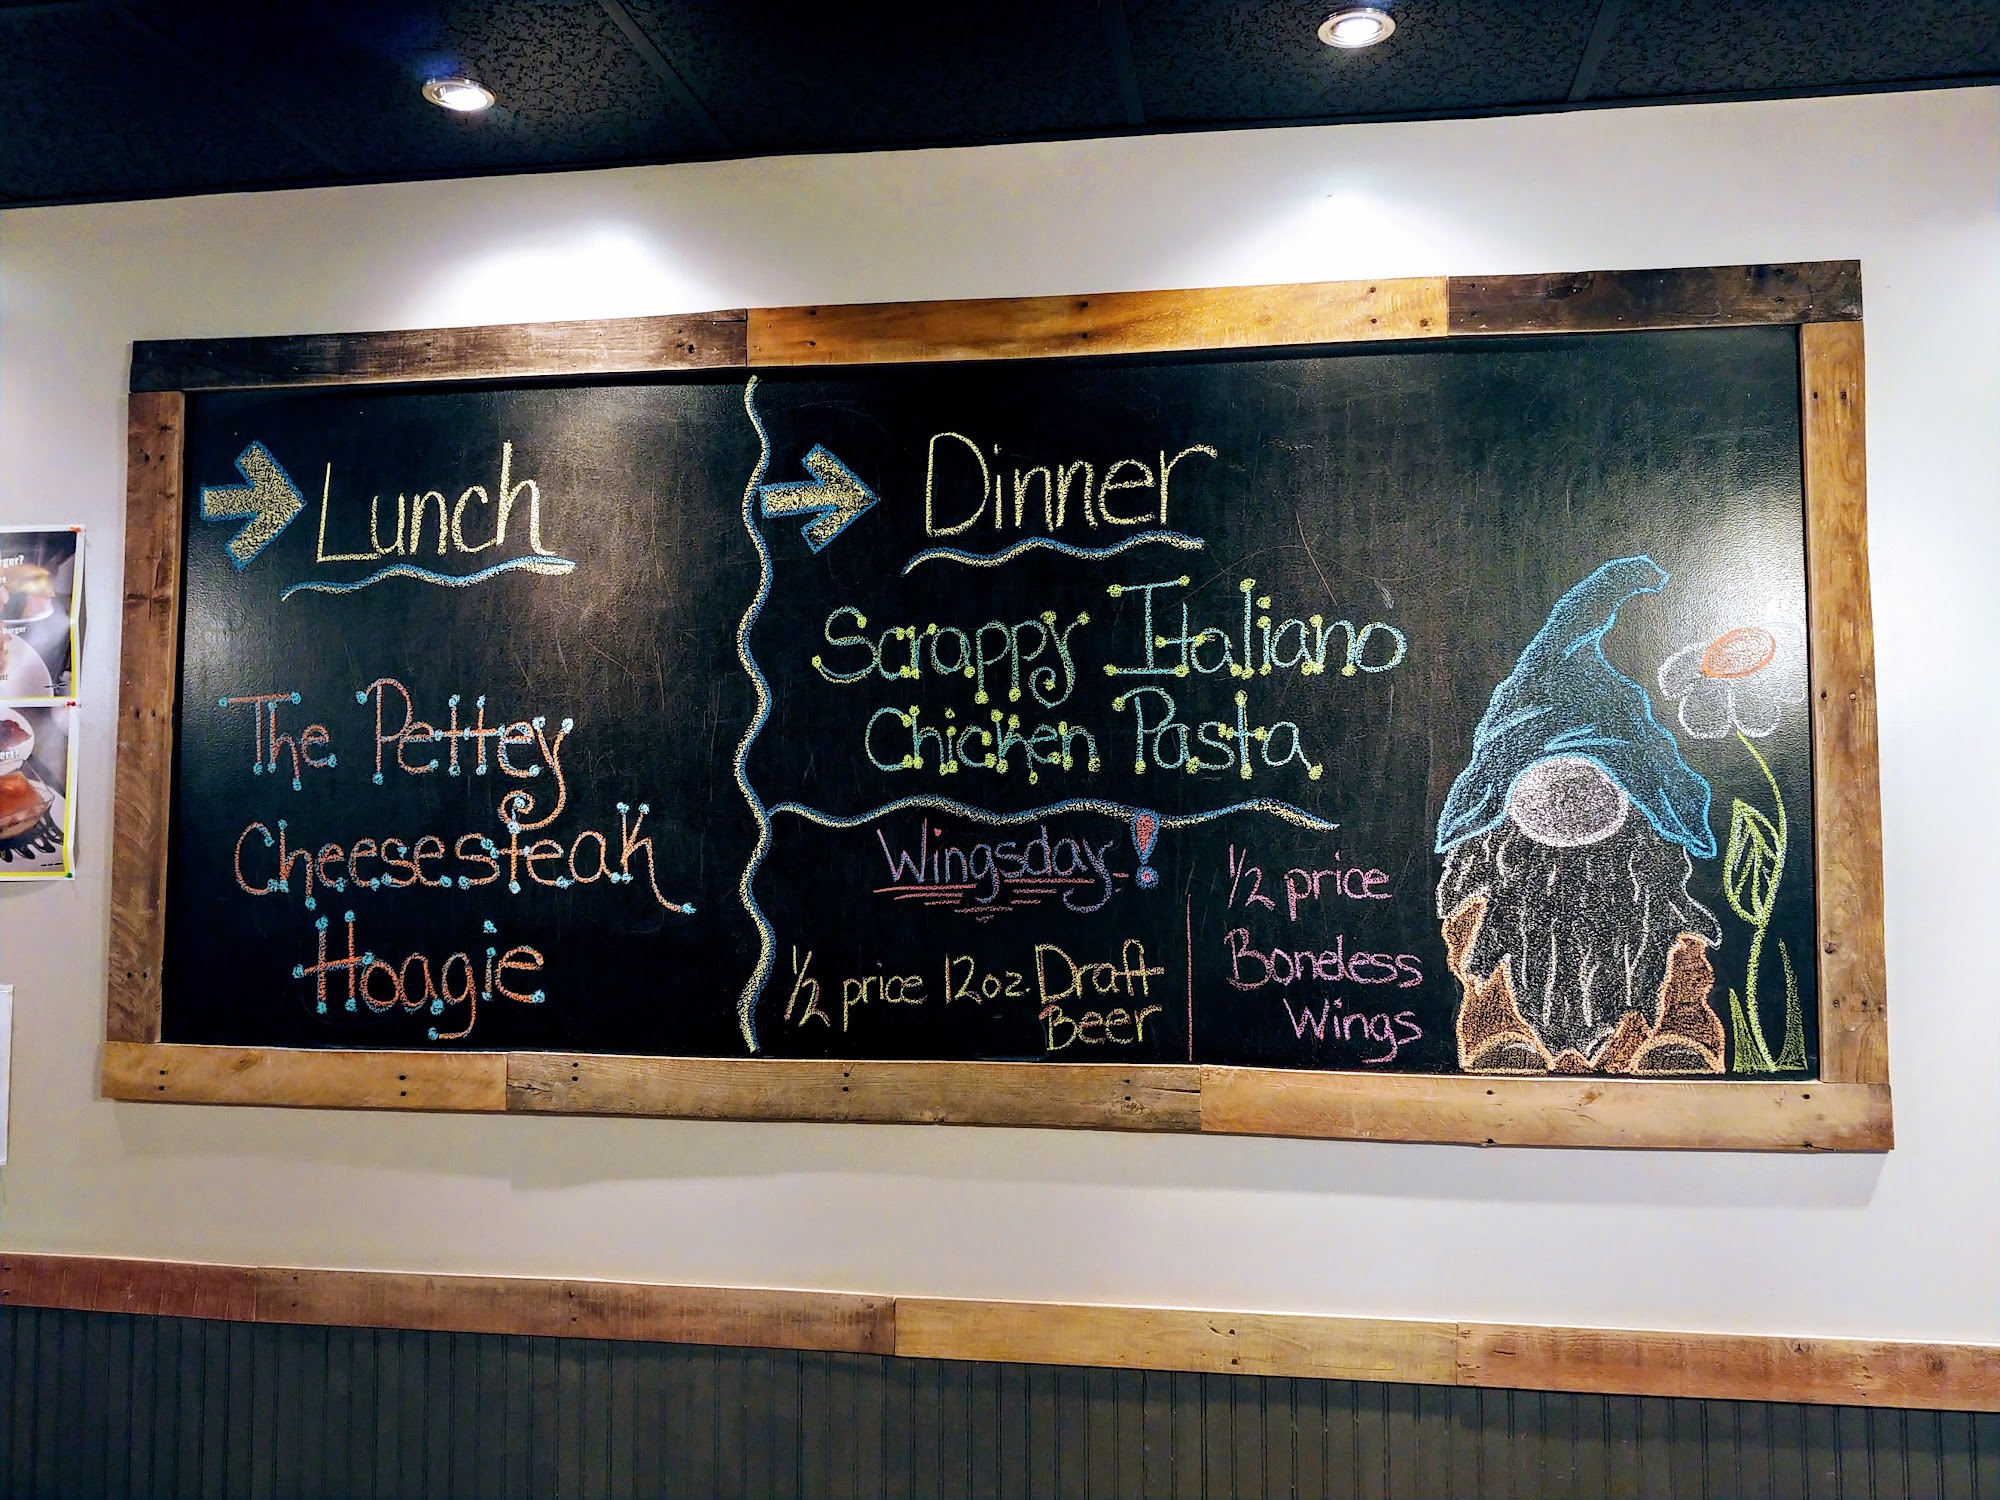 Lunch
The Pettey
Cheesesteak
Hoagie
Dinner
Scrappy Italiano
Chicken Pasta
Wingsday!
1/2 price 12oz. Draft
Beer
1/2 price
Boneless
Wings
Burger